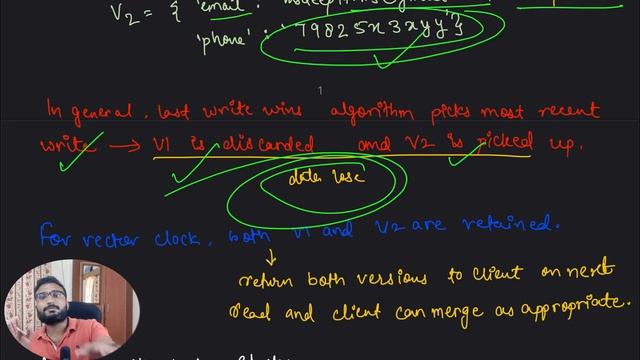 V2 = { 'email' :
'phone' : '79825x3xyy'}
In general, last write wins algorithm picks most recent
write → V1 is discarded and V2 is picked up.
data lose
For vector clock, both V1 and V2 are retained.
↓
return both versions to client on next
read and client can merge as appropriate.